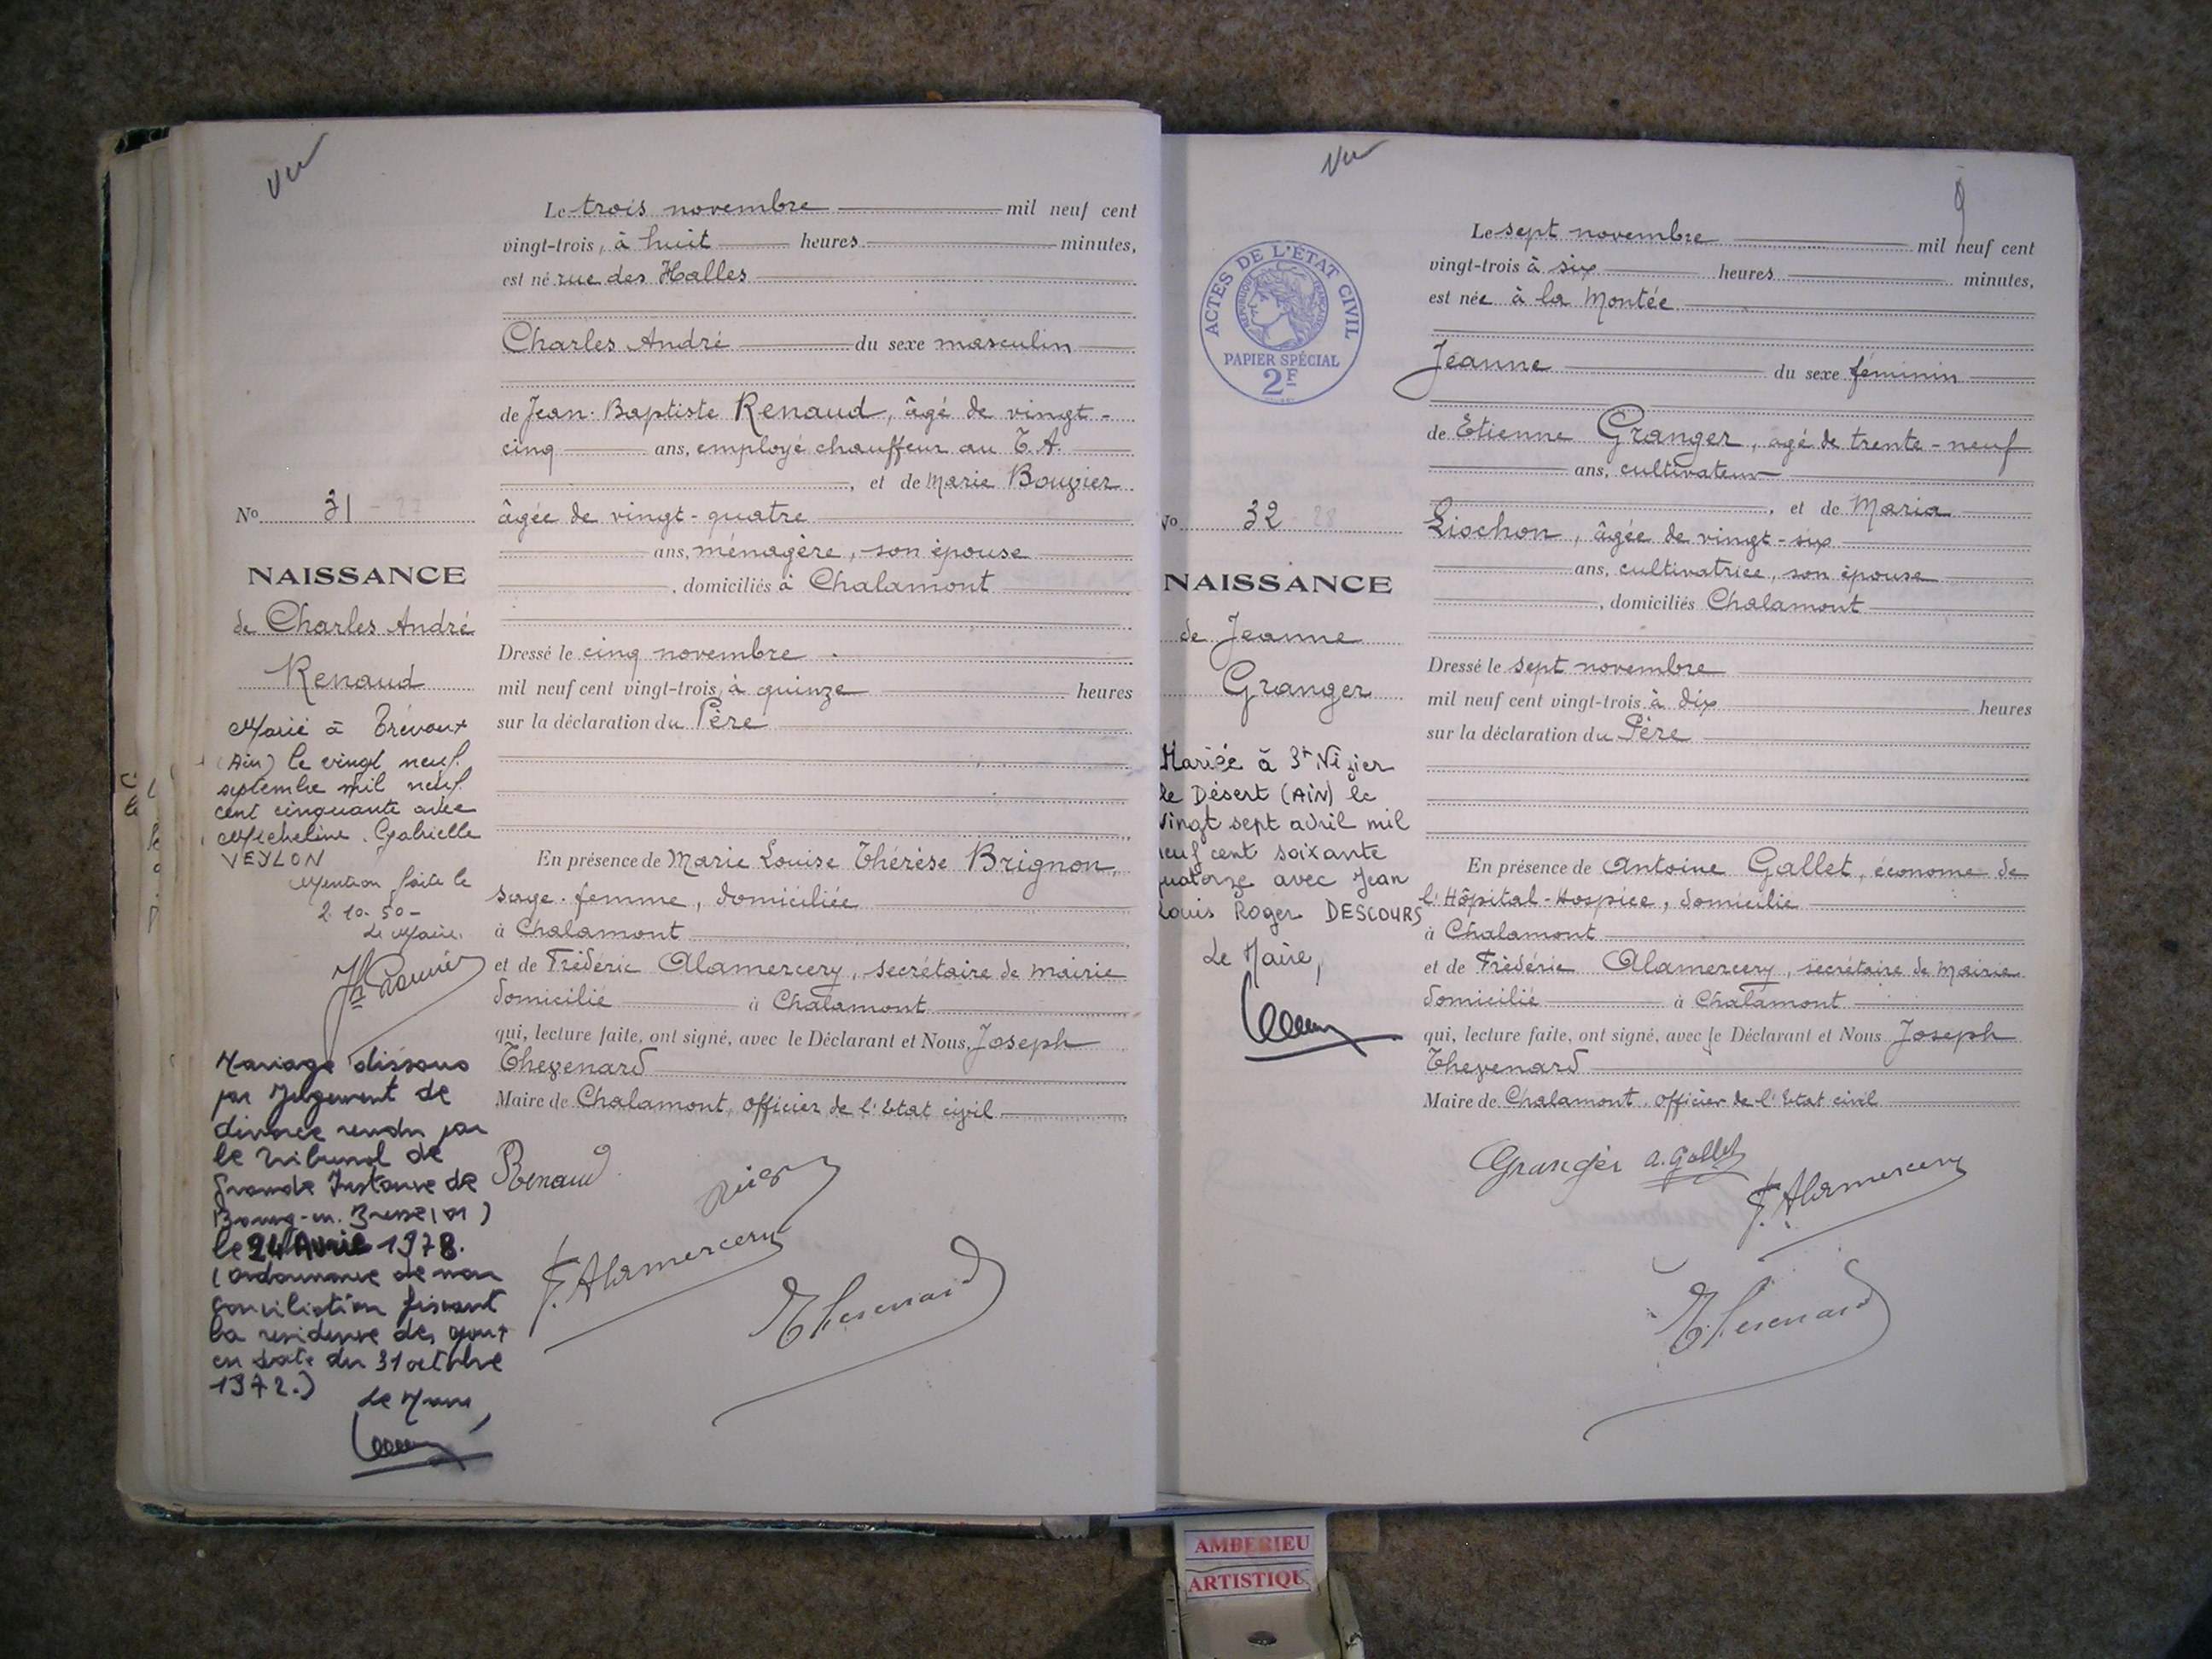 Vu
Le trois novembre mil neuf cent
vingt-trois, à huit heures minutes,
est né rue des Halles
Charles André du sexe masculin
de Jean-Baptiste Renaud, âgé de vingt-
cinq ans, employé chauffeur au T.A.
, et de Marie Bouvier
âgée de vingt-quatre
ans, ménagère, son épouse
, domiciliés à Chalamont
Dressé le cinq novembre
mil neuf cent vingt-trois, à quinze heures
sur la déclaration du Père
En présence de Marie Louise Thérèse Brignon,
sage-femme, domiciliée
à Chalamont
et de Frédéric Alamercery, secrétaire de mairie
domicilié à Chalamont
qui, lecture faite, ont signé, avec le Déclarant et Nous, Joseph
Thevenard
Maire de Chalamont, officier de l'Etat civil
Renaud
F. Alamercery
Thevenard
No 31
NAISSANCE
de Charles André
Renaud
Marié à Trévoux
(Ain) le vingt neuf
septembre mil neuf
cent cinquante avec
Micheline Gabrielle
VEYLON
Mention faite le
2-10-50-
Le Maire.
Mariage dissous
par Jugement de
divorce rendu par
le Tribunal de
Grande Instance de
Bourg-en-Bresse (01)
le 24 Avril 1978.
(ordonnance de non
conciliation fixant
la residence des époux
en date du 31 octobre
1972.)
Le Maire,
Vu
9
ACTES DE L'ÉTAT CIVIL
RÉPUBLIQUE FRANÇAISE
PAPIER SPÉCIAL
2F
Le sept novembre mil neuf cent
vingt-trois à six heures minutes,
est née à la Montée
Jeanne du sexe féminin
de Etienne Granger, âgé de trente-neuf
ans, cultivateur
, et de Maria
Liochon, âgée de vingt-six
ans, cultivatrice, son épouse
, domiciliés Chalamont
Dressé le sept novembre
mil neuf cent vingt-trois à dix heures
sur la déclaration du Père
En présence de Antoine Gallet, économe de
l'Hôpital-Hospice, domicilié
à Chalamont
et de Frédéric Alamercery, secrétaire de Mairie
domicilié à Chalamont
qui, lecture faite, ont signé, avec le Déclarant et Nous Joseph
Thevenard
Maire de Chalamont, officier de l'Etat civil
Granger A. Gallet
F. Alamercery
Thevenard
No 32
NAISSANCE
de Jeanne
Granger
Mariée à St Nizier
le Désert (AIN) le
vingt sept avril mil
neuf cent soixante
quatorze avec Jean
Louis Roger DESCOURS
Le Maire,
AMBERIEU
ARTISTIQUE